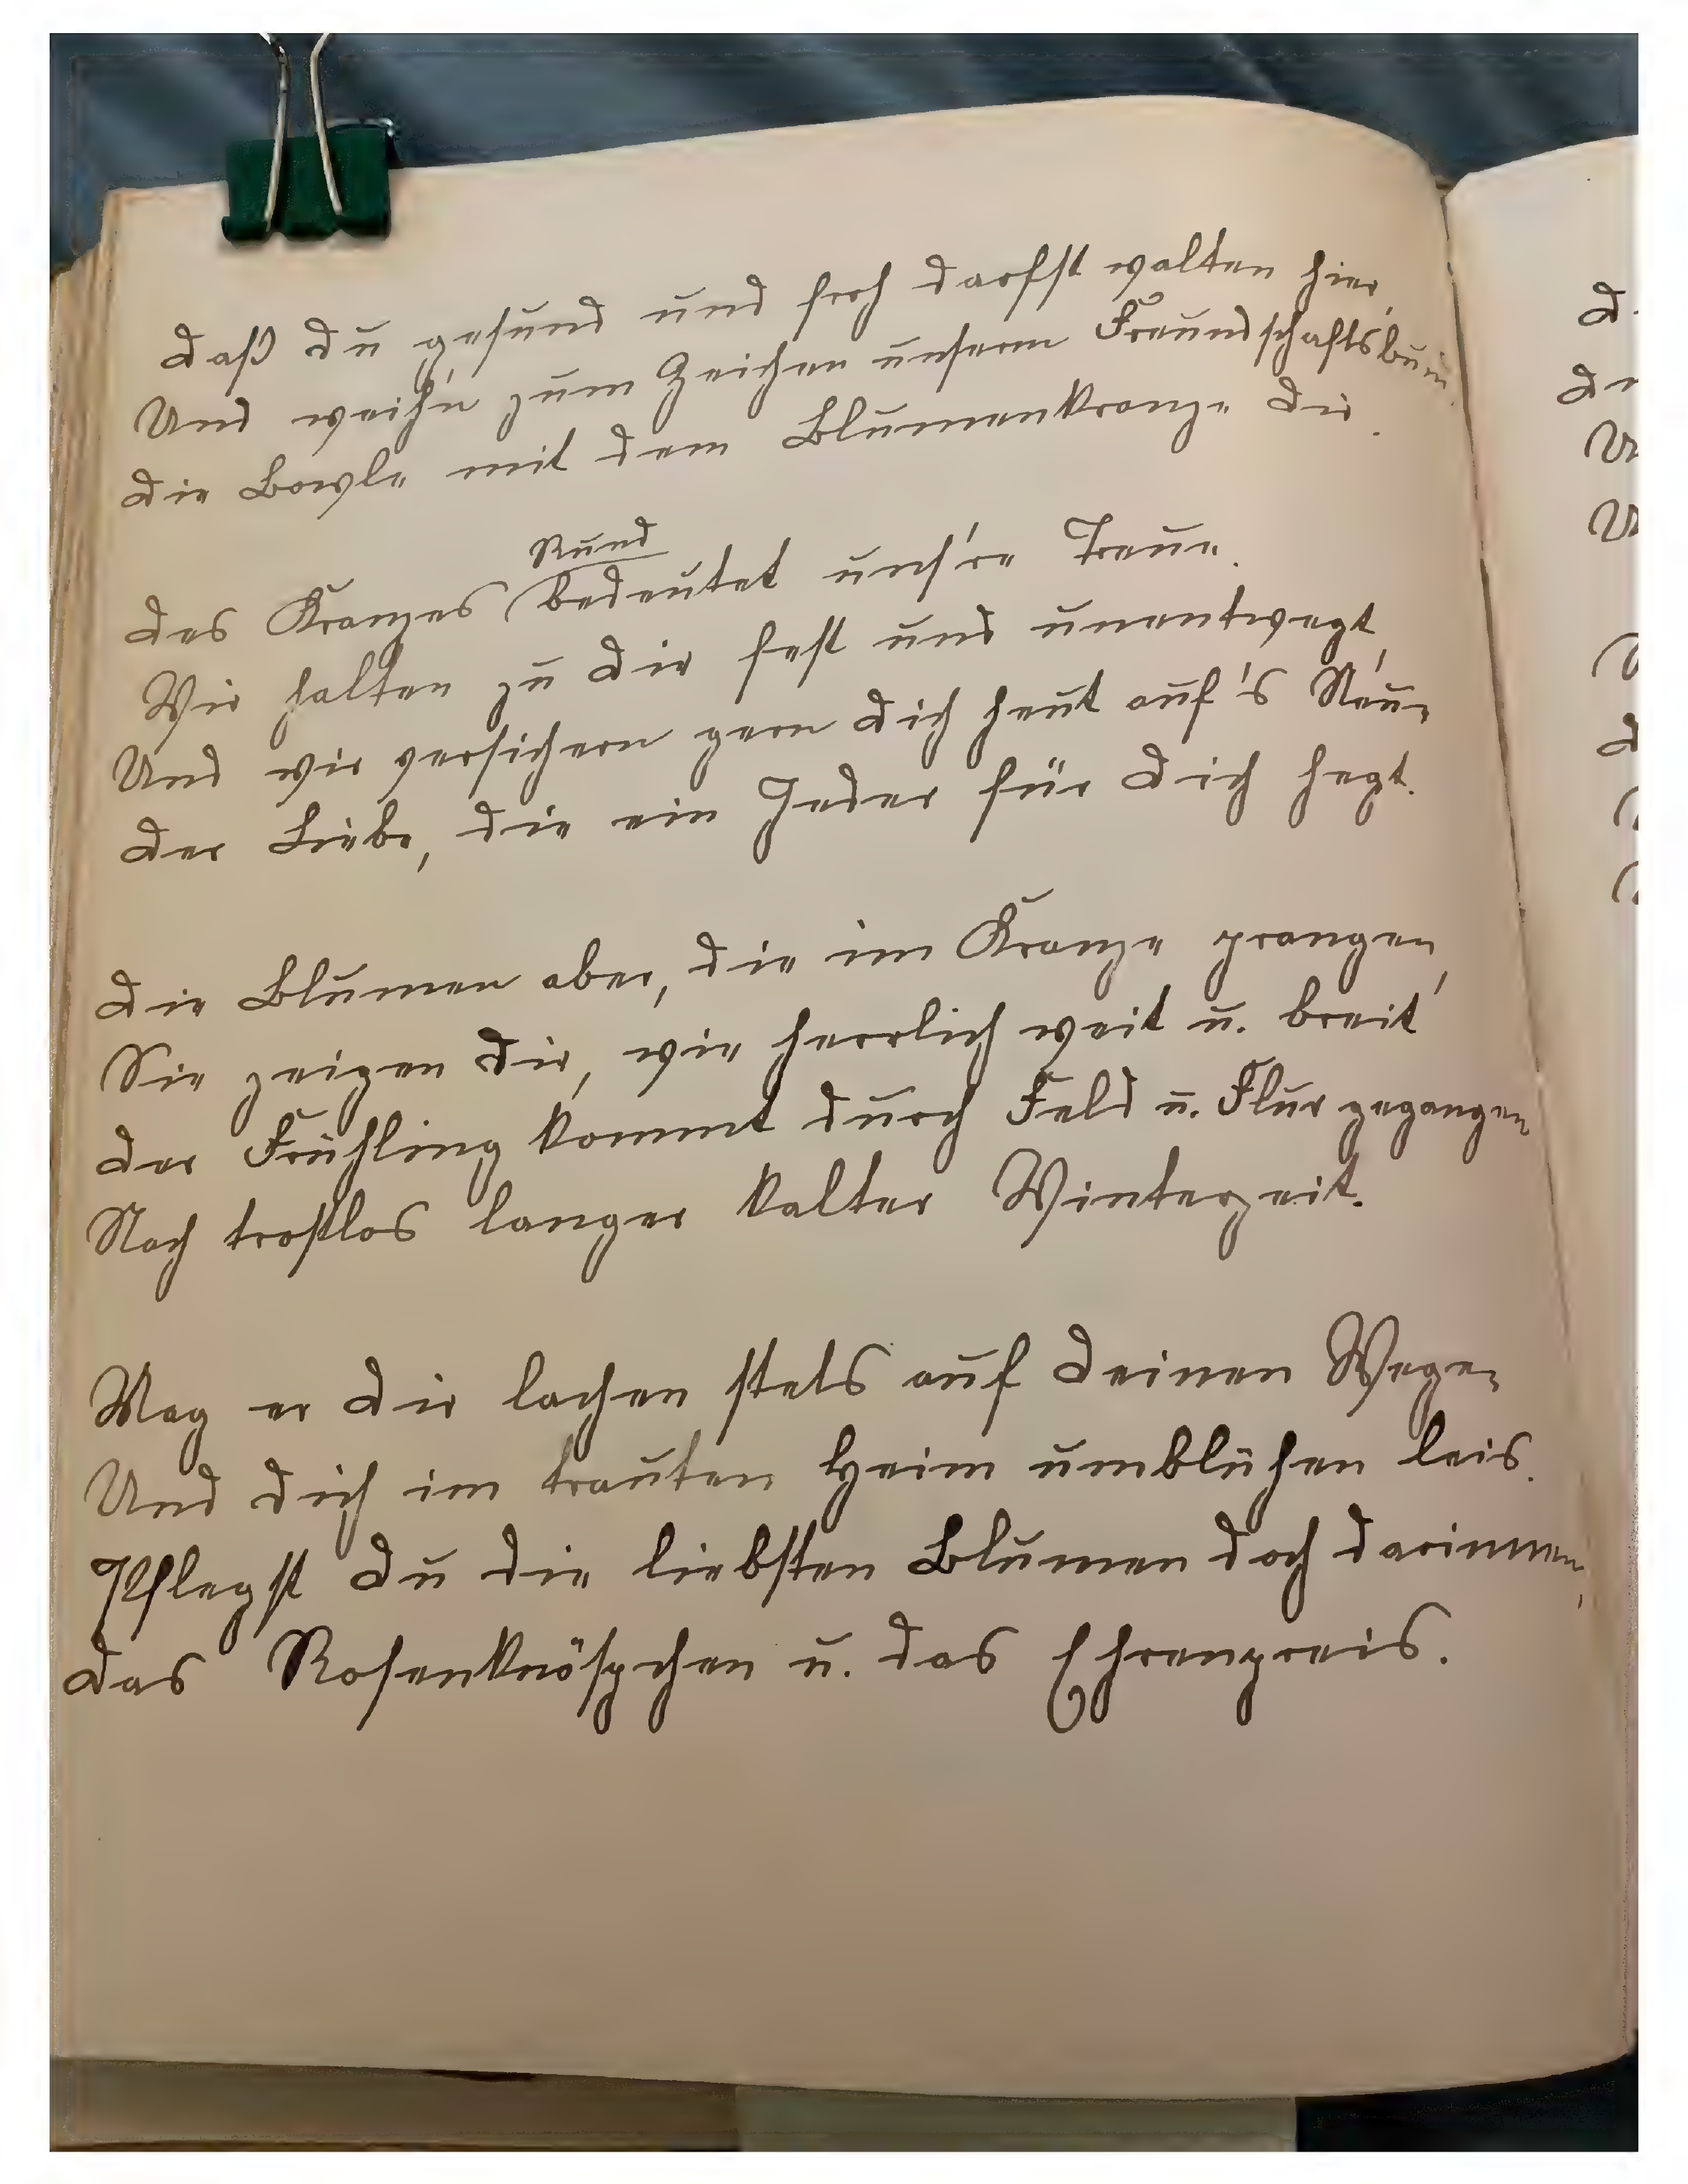 Daß Du gesund und froh darfst walten hier,
Und weih'n zum Zeichen unserm
Die Bowle mit dem Blumenkranze Dir.
Rund
Des Kranzes bedeutet uns're Treue.
Wir halten zu Dir fest und unentwegt,
Und wir versichern gern Dich heut auf's Neue
Der Liebe, die ein Jeder für Dich hegt.
Die Blumen aber, die im Kranze prangen,
Sie zeigen Dir, wie herrlich weit u. breit
Der Frühling kommt durch Feld u. Flur gegangen
Nach trostlos langer kalter Winterzeit.
Mag er Dir lachen stets auf Deinen Wegen
Und Dich im trauten Heim umblühen leis.
Pflegst Du die liebsten Blumen doch darinnen,
Das Rosenknöspchen u. das Ehrenpreis.